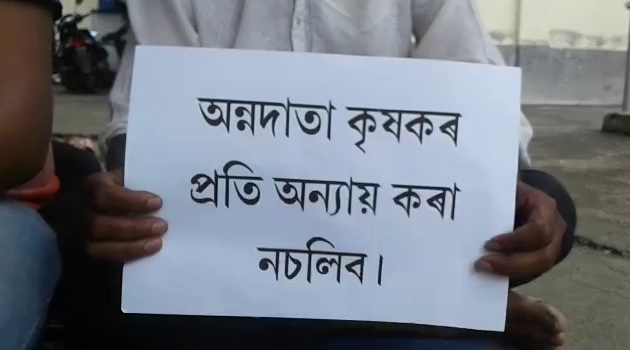 অন্নদাতা কৃষকৰ
প্ৰতি অন্যায় কৰা
নচলিব।